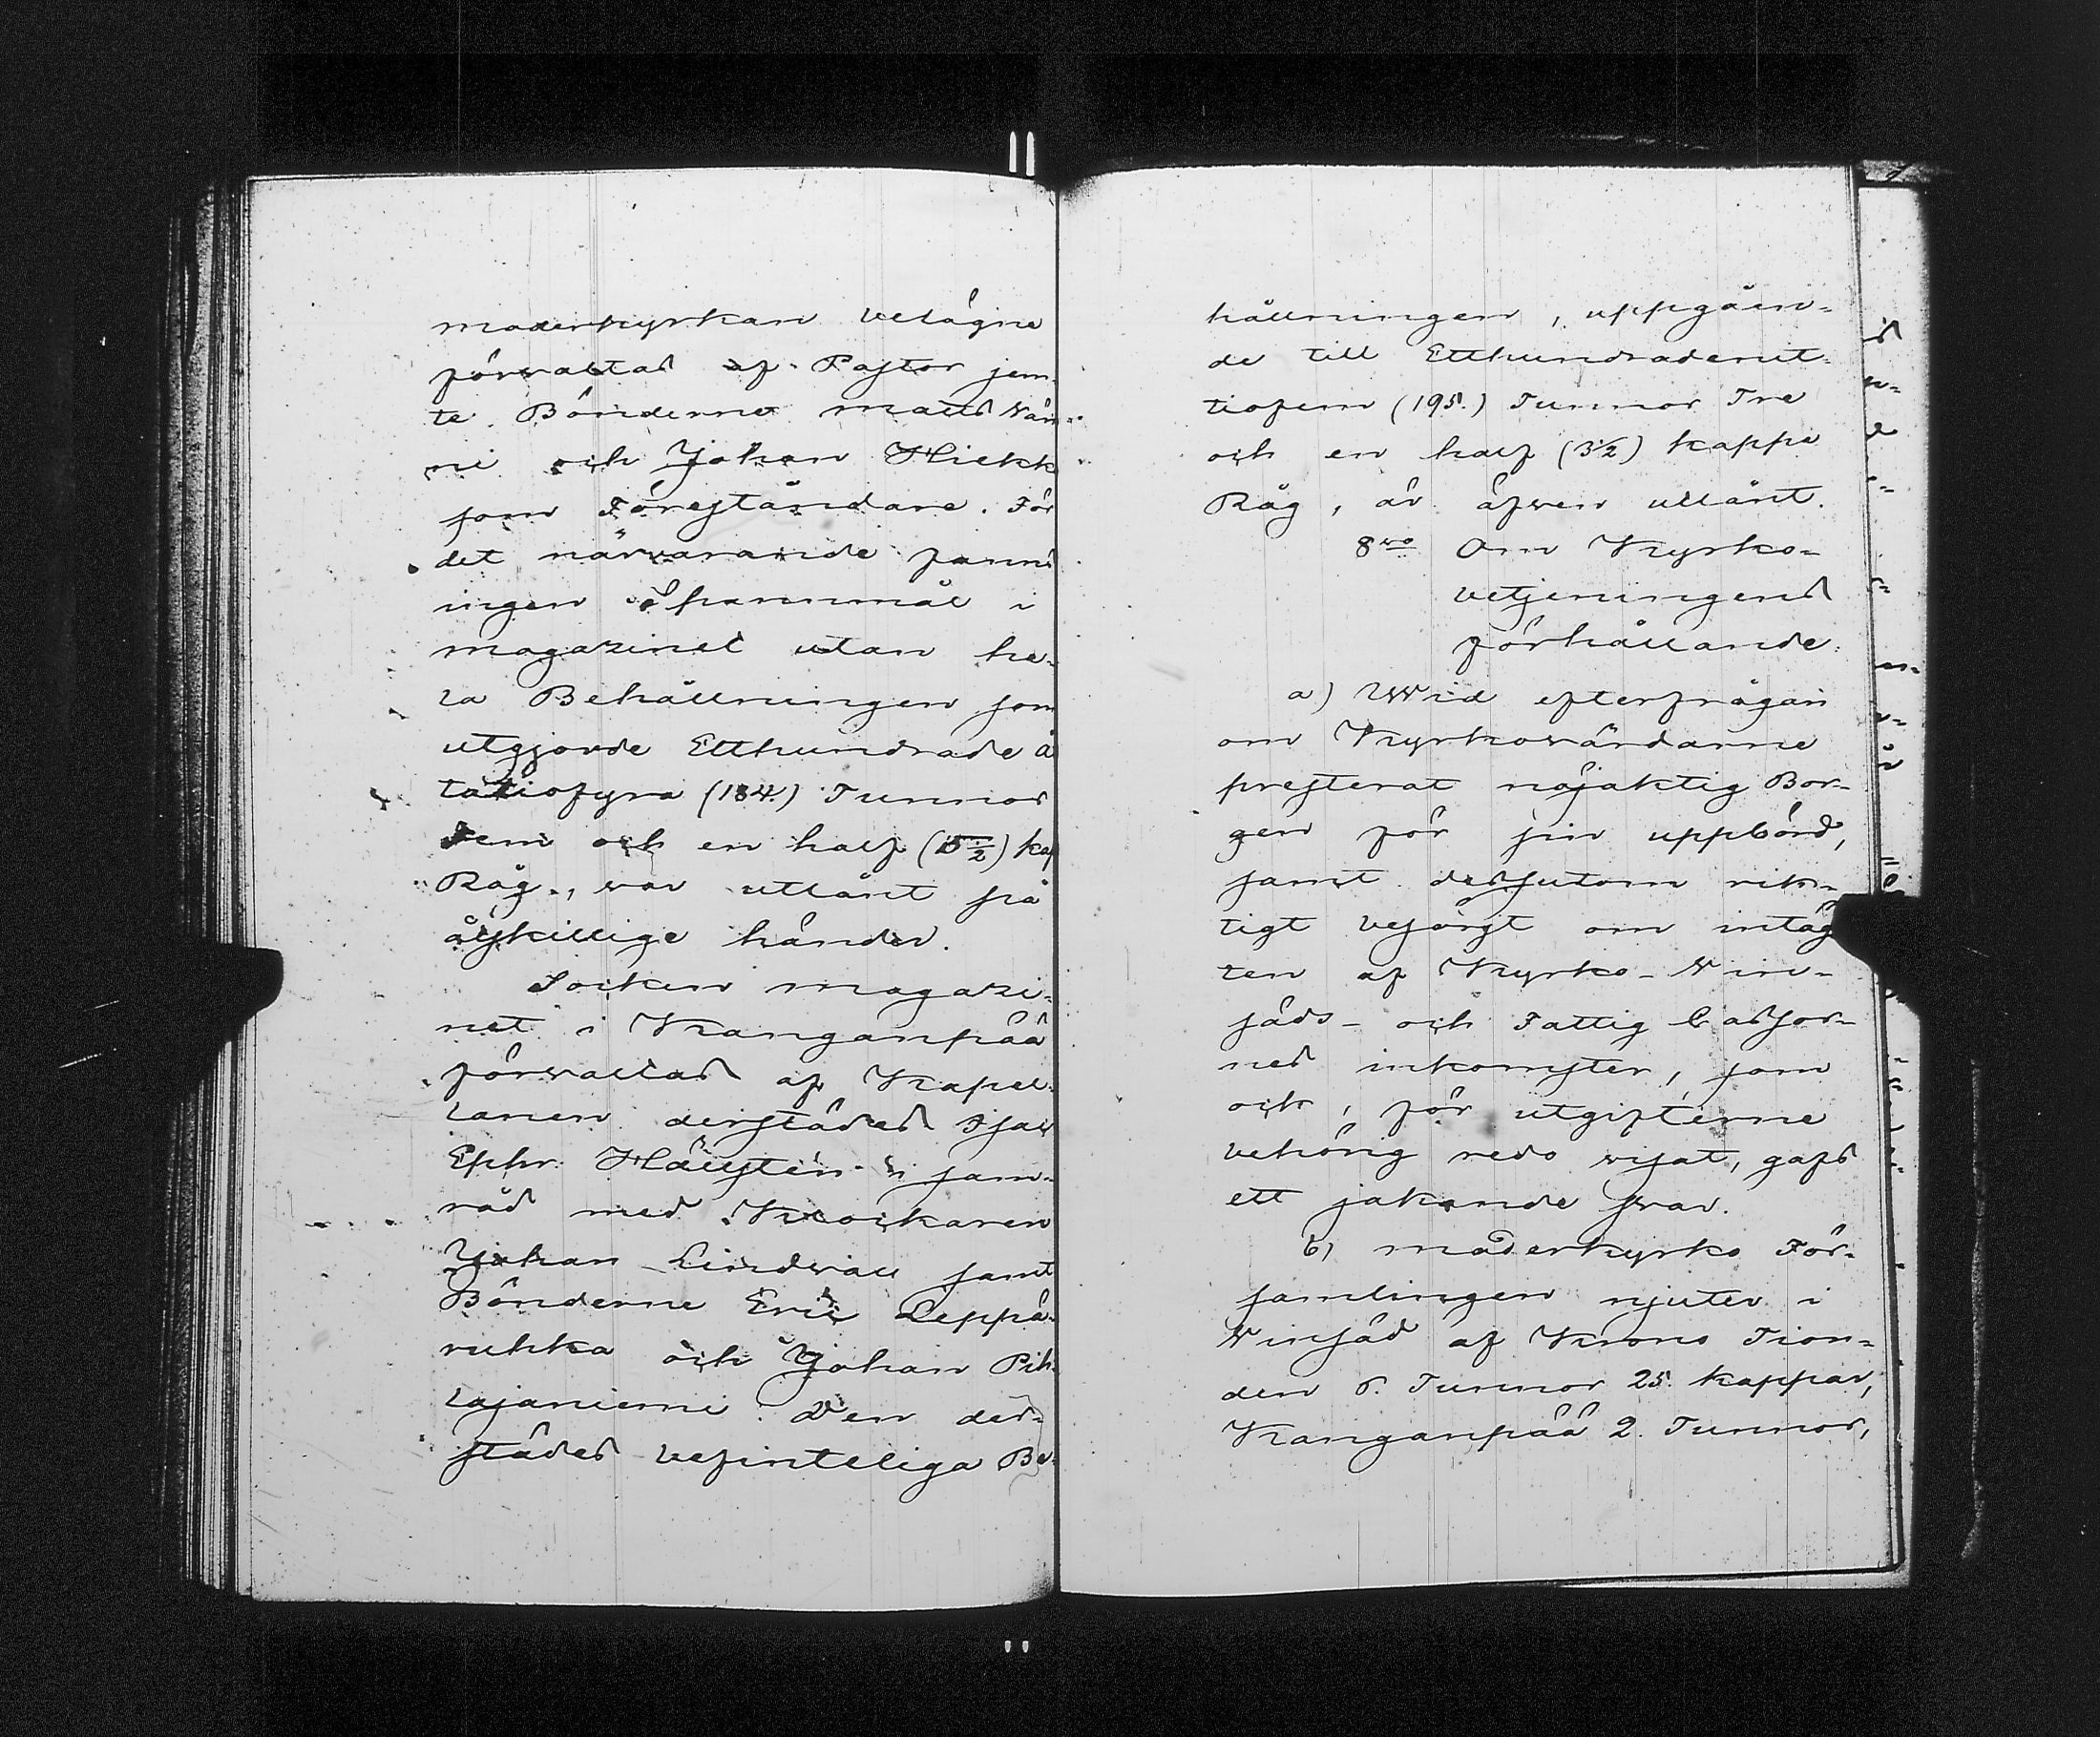 moderkyrkan belägne
förvaltas af Pastor jem-
te Bönderne Matts Nän-
ni och Johan Hiekk
som Föreståndare. För
det närvarande fanns
ingen spannmål i
magazinet utan he-
la Behållningen som
utgjorde Etthundrade å
tatiofyra (184.) Tunnor
Fem och en half (5½) kap
Råg, var utlånt på
åtskillige händer.
Socken magazi-
net i Kanganpää
förvaltas af Kapel-
lanen derstädes Isac
Ephr. Hällsten i sam-
råd med Klockaren
Johan Lindvall samt
Bönderne Eric Leppä-
ruhka och Johan Pih-
lajaniemi. Den der-
städes befinteliga Be-
hållningen, uppgåen-
de till Etthundradenit-
tiofem (195.) Tunnor Tre
och en half (3½) kappe
Råg, är äfven utlånt.
8vo Om Kyrko-
betjeningens
förhållande.
a) Wid efterfrågan
om Kyrkovärdarne
presterat nöjaktig Bor-
gen för sin uppbörd,
samt dessutom rik-
tigt besörgt om intäg
ten af Kyrko- Vin-
säds- och Fattig Cassor-
nes inkomster, som
ock, för utgifterne
behörig redo visat, gafs
ett jakande svar.
b) moderkyrko För-
samlingen njuter i
Vinsäd af Krono Tion-
den 6. Tunnor 25. kappar,
Kanganpää 2. Tunnor,